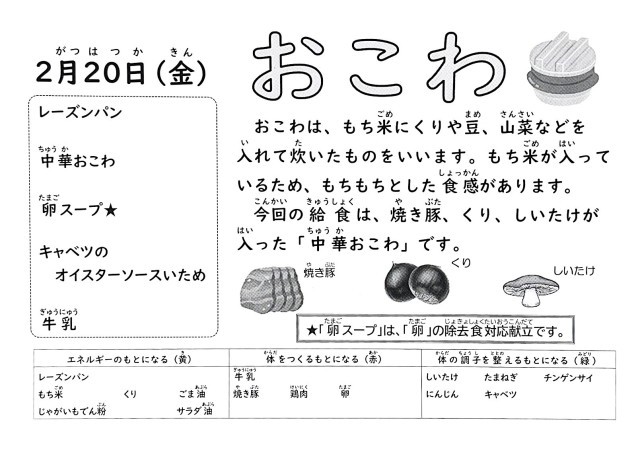 2月20日(金)
おこわ
レーズンパン
中華おこわ
卵スープ★
キャベツの
オイスターソースいため
牛乳
おこわは、もち米にくりや豆、山菜などを
入れて炊いたものをいいます。もち米が入って
いるため、もちもちとした食感があります。
今回の給食は、焼き豚、くり、しいたけが
入った「中華おこわ」です。
焼き豚
くり
しいたけ
★「卵スープ」は、「卵」の除去食対応献立です。
エネルギーのもとになる(黄) 体をつくるもとになる(赤) 体の調子を整えるもとになる(緑)
レーズンパン 牛乳 しいたけ たまねぎ チンゲンサイ
もち米 くり ごま油 焼き豚 鶏肉 卵 にんじん キャベツ
じゃがいもでん粉 サラダ油